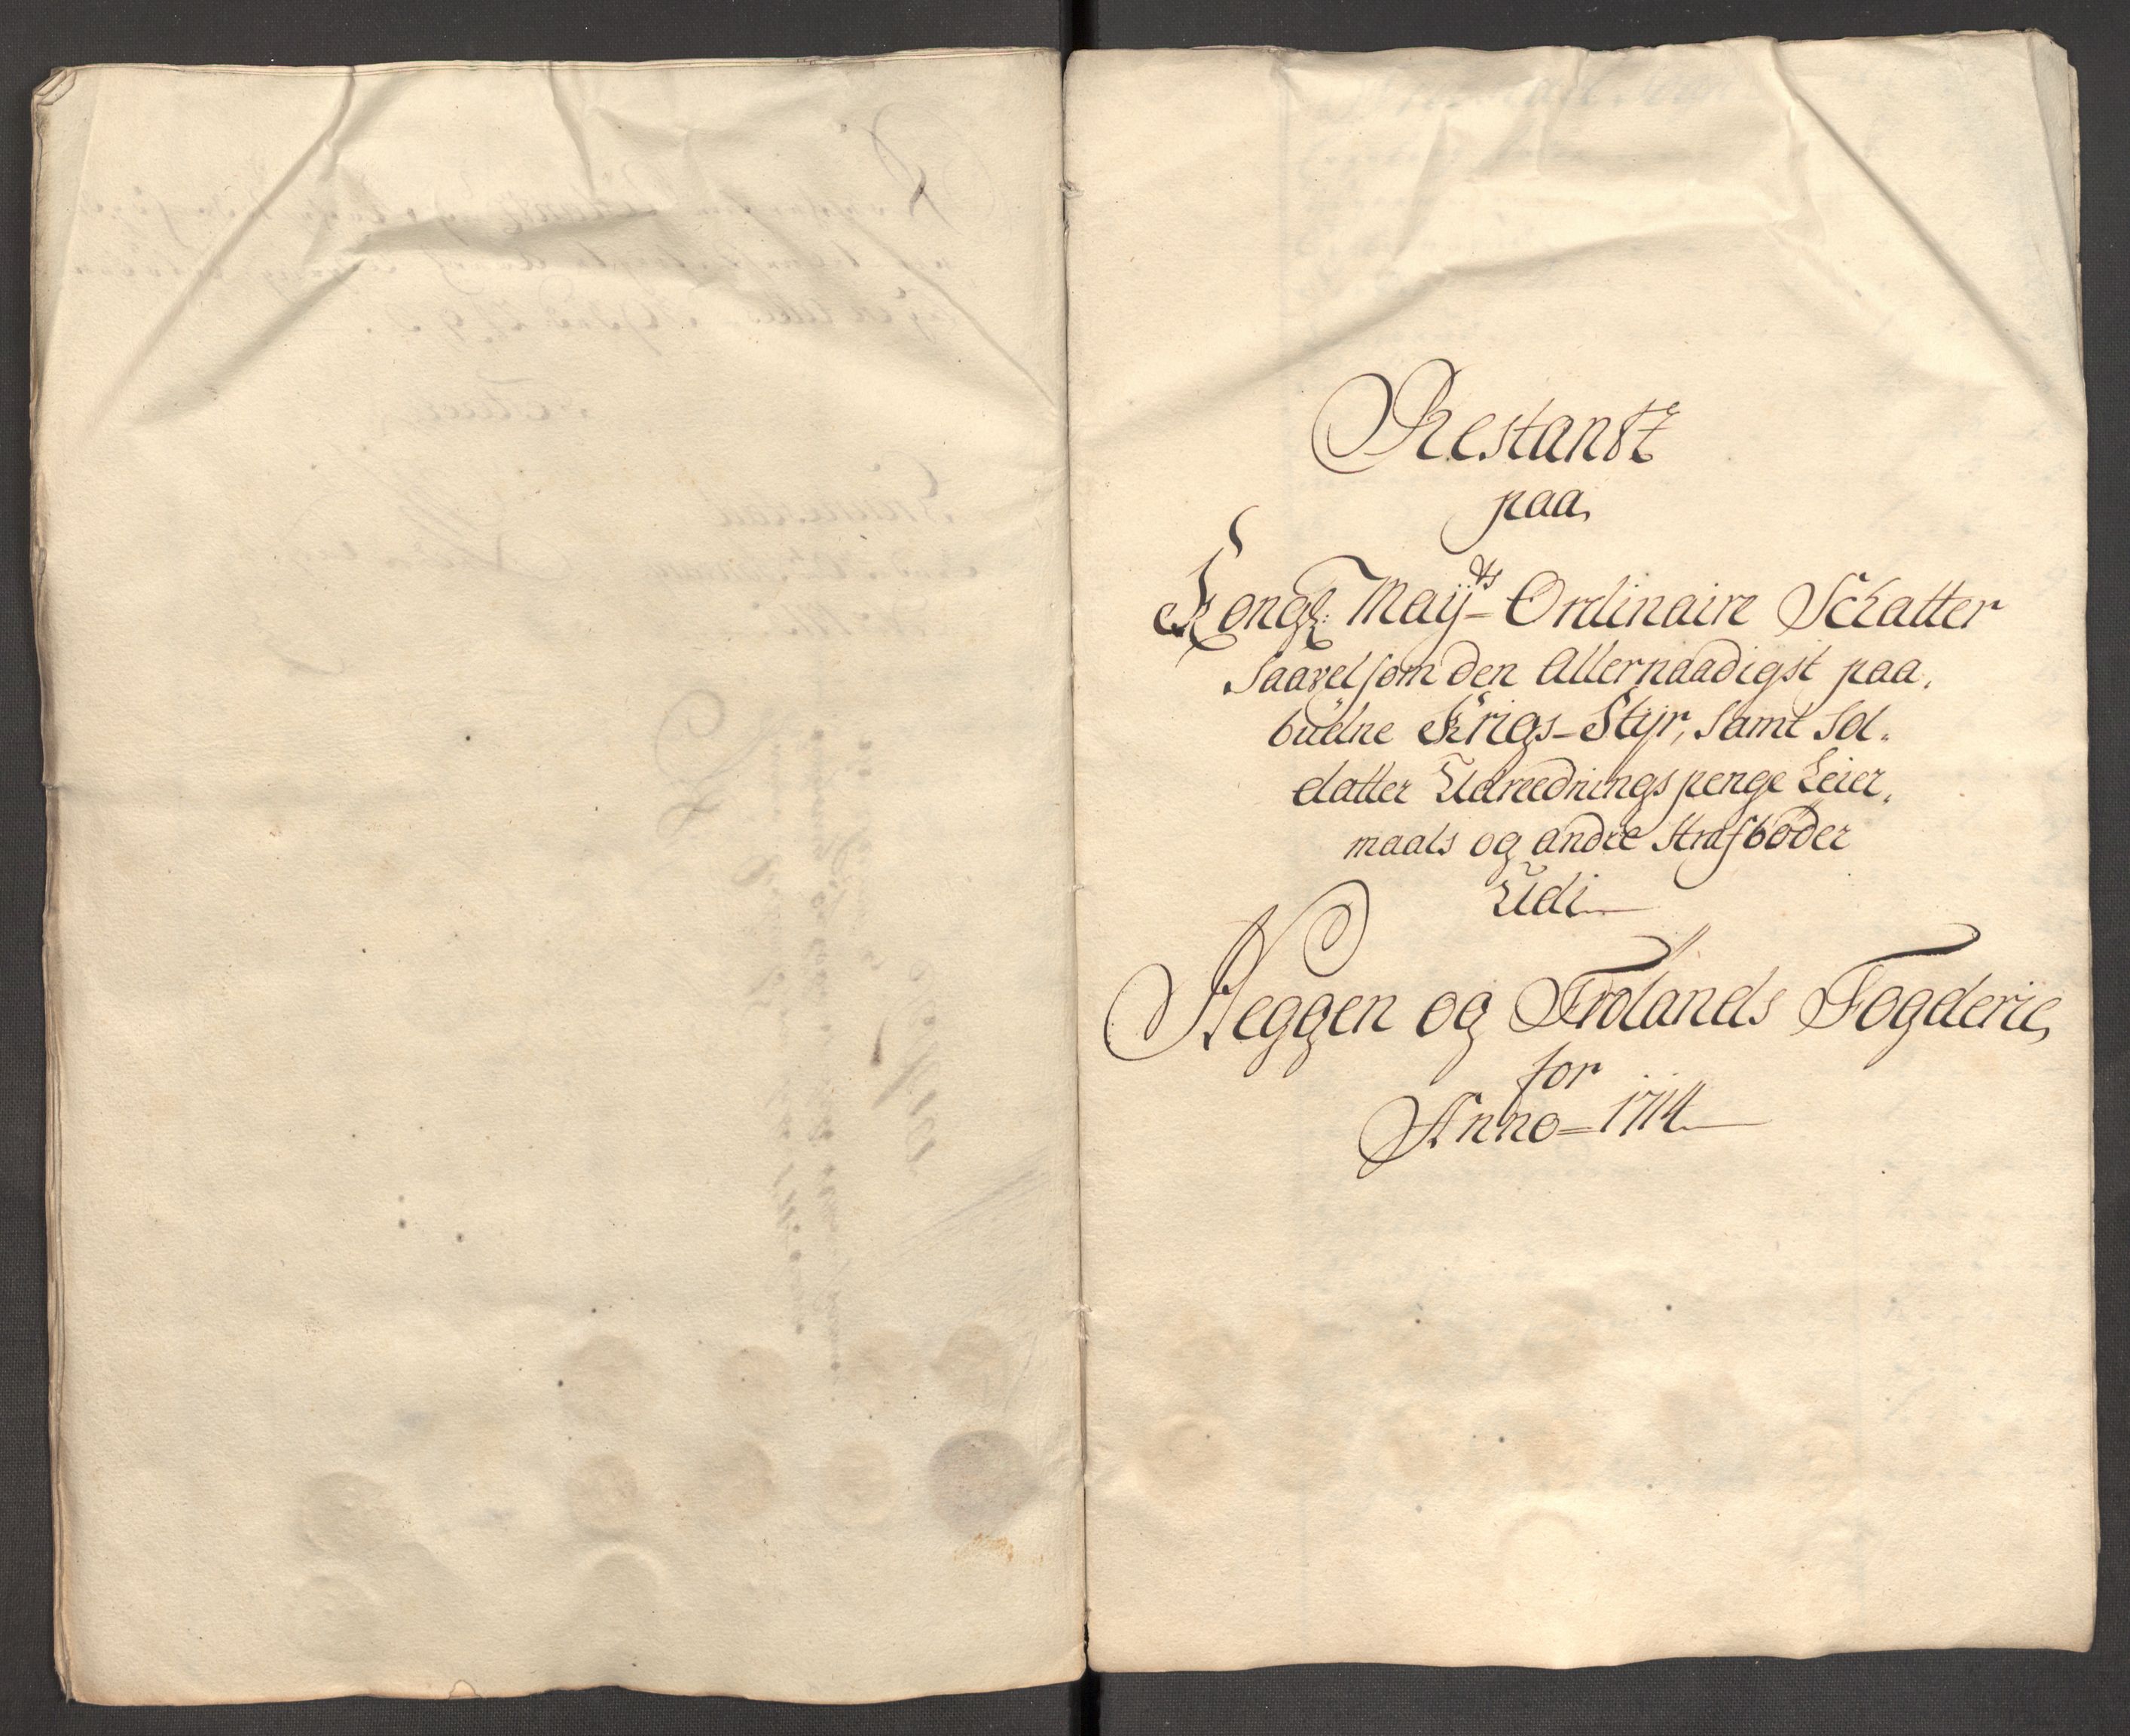 Restantz
paa
Kongl: Maÿ-ts Ordinaire Schatter
saavelsom den Allernaadigst paa,
budne Krigs-Stÿr, samt Sol,
datter Udreednings penge Leier,
maals og andre strafbøder
Udi
Heggen og Frølands Fogderie
for
Anno=1714